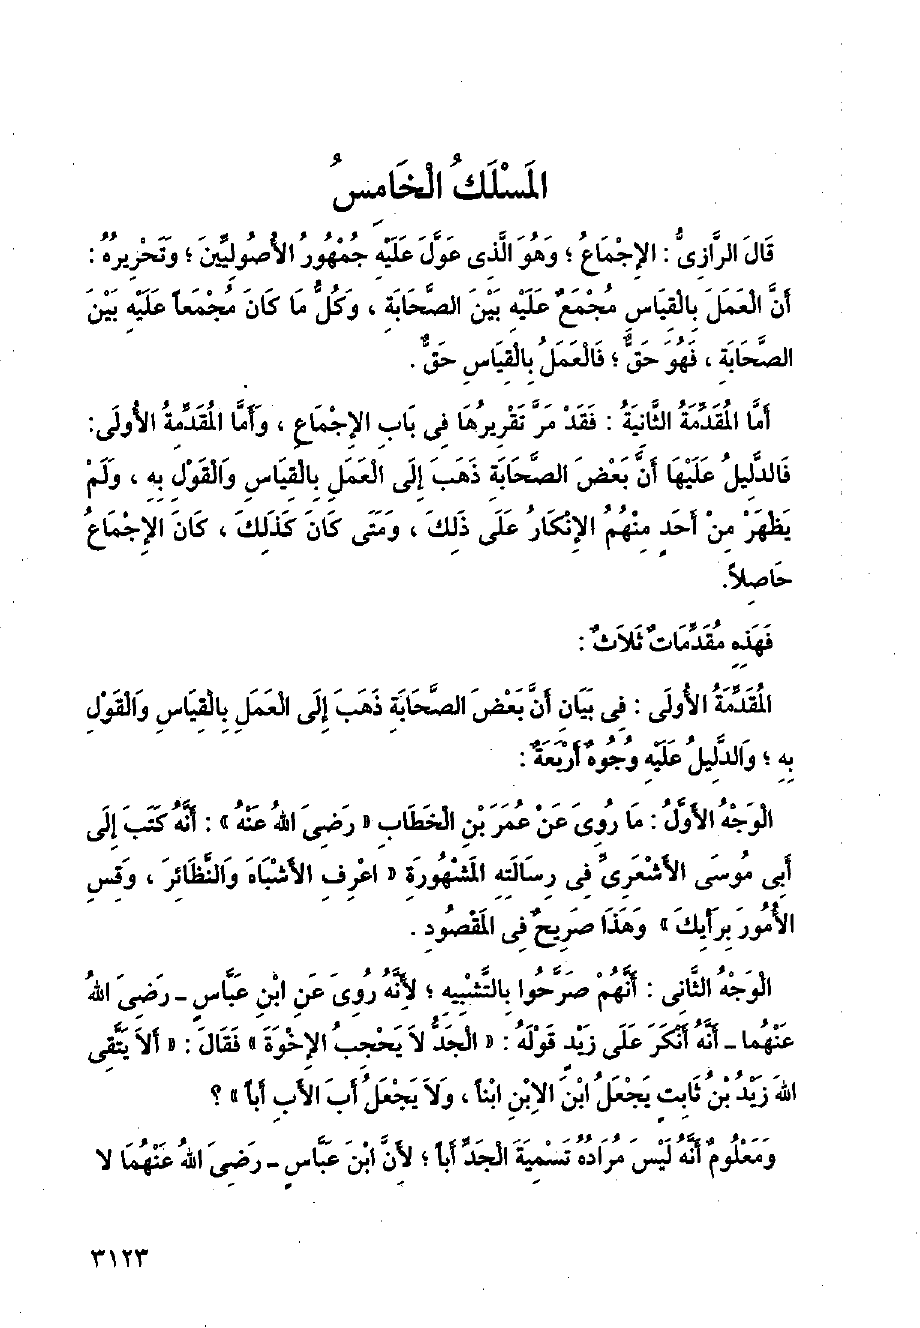 المَسْلَكُ الْخَامِسُ
قَالَ الرَّازِىُّ : الإِجْمَاعُ ؛ وَهُوَ الَّذِى عَوَّلَ عَلَيْهِ جُمْهُورُ الأُصُولِيِّينَ ؛ وَتَحْرِيرُهُ :
أَنَّ الْعَمَلَ بِالْقِيَاسِ مُجْمَعٌ عَلَيْهِ بَيْنَ الصَّحَابَةِ ، وَكُلُّ مَا كَانَ مُجْمَعاً عَلَيْهِ بَيْنَ
الصَّحَابَةِ ، فَهُوَ حَقٌّ ؛ فَالْعَمَلُ بِالْقِيَاسِ حَقٌّ .
أَمَّا الْمُقَدِّمَةُ الثَّانِيَةُ : فَقَدْ مَرَّ تَقْرِيرُهَا فِى بَابِ الإِجْمَاعِ ، وَأَمَّا الْمُقَدِّمَةُ الأُولَى:
فَالدَّلِيلُ عَلَيْهَا أَنَّ بَعْضَ الصَّحَابَةِ ذَهَبَ إِلَى الْعَمَلِ بِالْقِيَاسِ وَالْقَوْلِ بِهِ ، وَلَمْ
يَظْهَرْ مِنْ أَحَدٍ مِنْهُمُ الإِنْكَارُ عَلَى ذَلِكَ ، وَمَتَى كَانَ كَذَلِكَ ، كَانَ الإِجْمَاعُ
حَاصِلاً.
فَهَذِهِ مُقَدِّمَاتٌ ثَلاَثٌ :
الْمُقَدِّمَةُ الأُولَى : فِى بَيَانِ أَنَّ بَعْضَ الصَّحَابَةِ ذَهَبَ إِلَى الْعَمَلِ بِالْقِيَاسِ وَالْقَوْلِ
بِهِ ؛ وَالدَّلِيلُ عَلَيْهِ وُجُوهٌ أَرْبَعَةٌ :
الْوَجْهُ الأَوَّلُ : مَا رُوِىَ عَنْ عُمَرَ بْنِ الْخَطَّابِ « رَضِىَ اللهُ عَنْهُ » : أَنَّهُ كَتَبَ إِلَى
أَبِى مُوسَى الأَشْعَرِىِّ فِى رِسَالَتِهِ الْمَشْهُورَةِ « اعْرِفِ الأَشْبَاهَ وَالنَّظَائِرَ ، وَقِسِ
الأُمُورَ بِرَأْيِكَ » وَهَذَا صَرِيحٌ فِى الْمَقْصُودِ .
الْوَجْهُ الثَّانِى : أَنَّهُمْ صَرَّحُوا بِالتَّشْبِيهِ ؛ لأَنَّهُ رُوِىَ عَنِ ابْنِ عَبَّاسٍ - رَضِىَ اللهُ
عَنْهُمَا - أَنَّهُ أَنْكَرَ عَلَى زَيْدٍ قَوْلَهُ : « الْجَدُّ لاَ يَحْجِبُ الإِخْوَةَ » فَقَالَ : « أَلاَ يَتَّقِى
اللهَ زَيْدُ بْنُ ثَابِتٍ يَجْعَلُ ابْنَ الاِبْنِ ابْناً ، وَلاَ يَجْعَلُ أَبَ الأَبِ أَباً » ؟
وَمَعْلُومٌ أَنَّهُ لَيْسَ مُرَادُهُ تَسْمِيَةَ الْجَدِّ أَباً ؛ لأَنَّ ابْنَ عَبَّاسٍ - رَضِىَ اللهُ عَنْهُمَا لاَ
٣١٢٣